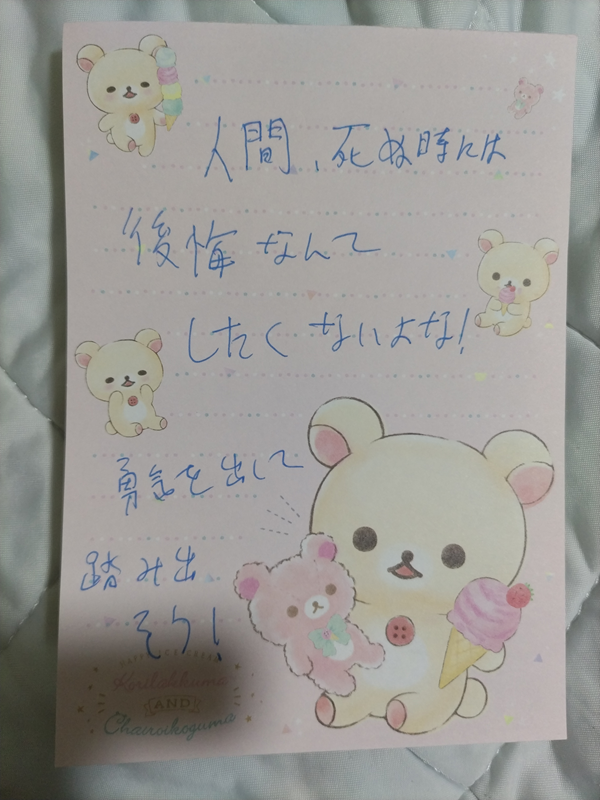 人間、死ぬ時には
後悔なんて
したくないよな!
勇気を出して
踏み出
そう!
Korilakkuma
AND
Chairoikoguma